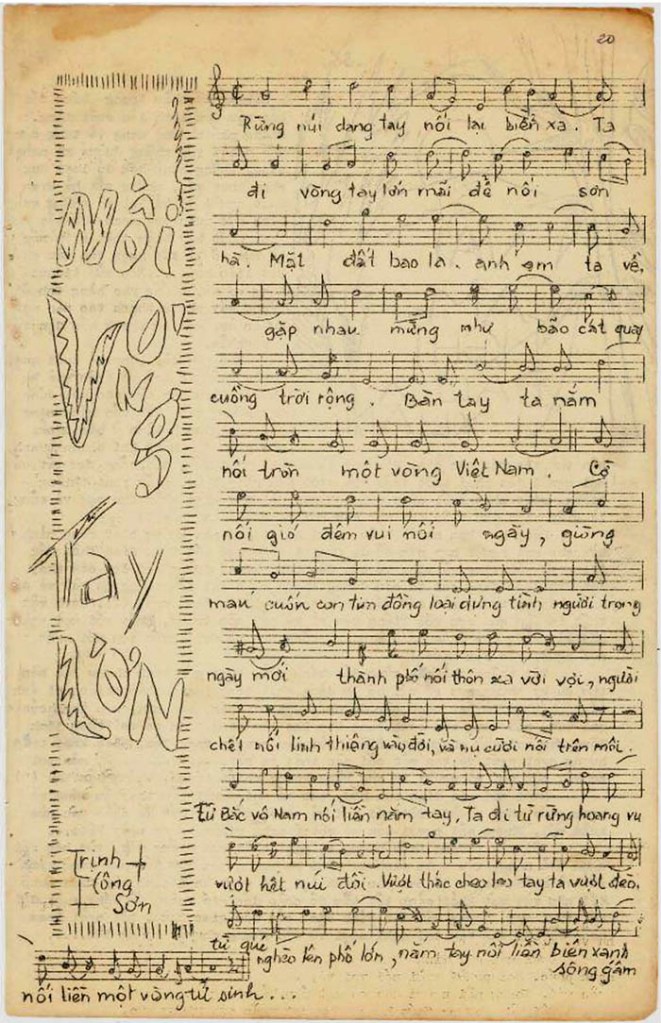 20
Nối
Vòng
Tay
Lớn
Trịnh
Công
Sơn
Rừng núi dang tay nối lại biển xa. Ta
đi vòng tay lớn mãi để nối sơn
hà. Mặt đất bao la. anh em ta về,
gặp nhau. mừng như bão cát quay
cuồng trời rộng. Bàn tay ta nắm
nối tròn một vòng Việt Nam. Cờ
nối gió đêm vui nối ngày, giòng
máu cuốn con tim đồng loại dựng tình người trong
ngày mới thành phố nối thôn xa vời vợi, người
chết nối linh thiêng vào đời, và nụ cười nối trên môi.
Từ Bắc vô Nam nối liền nắm tay, Ta đi từ rừng hoang vu
vượt hết núi đồi. Vượt thác cheo leo tay ta vượt đèo,
từ quê nghèo lên phố lớn, nắm tay nối liền biển xanh
sông gấm
nối liền một vòng tử sinh...